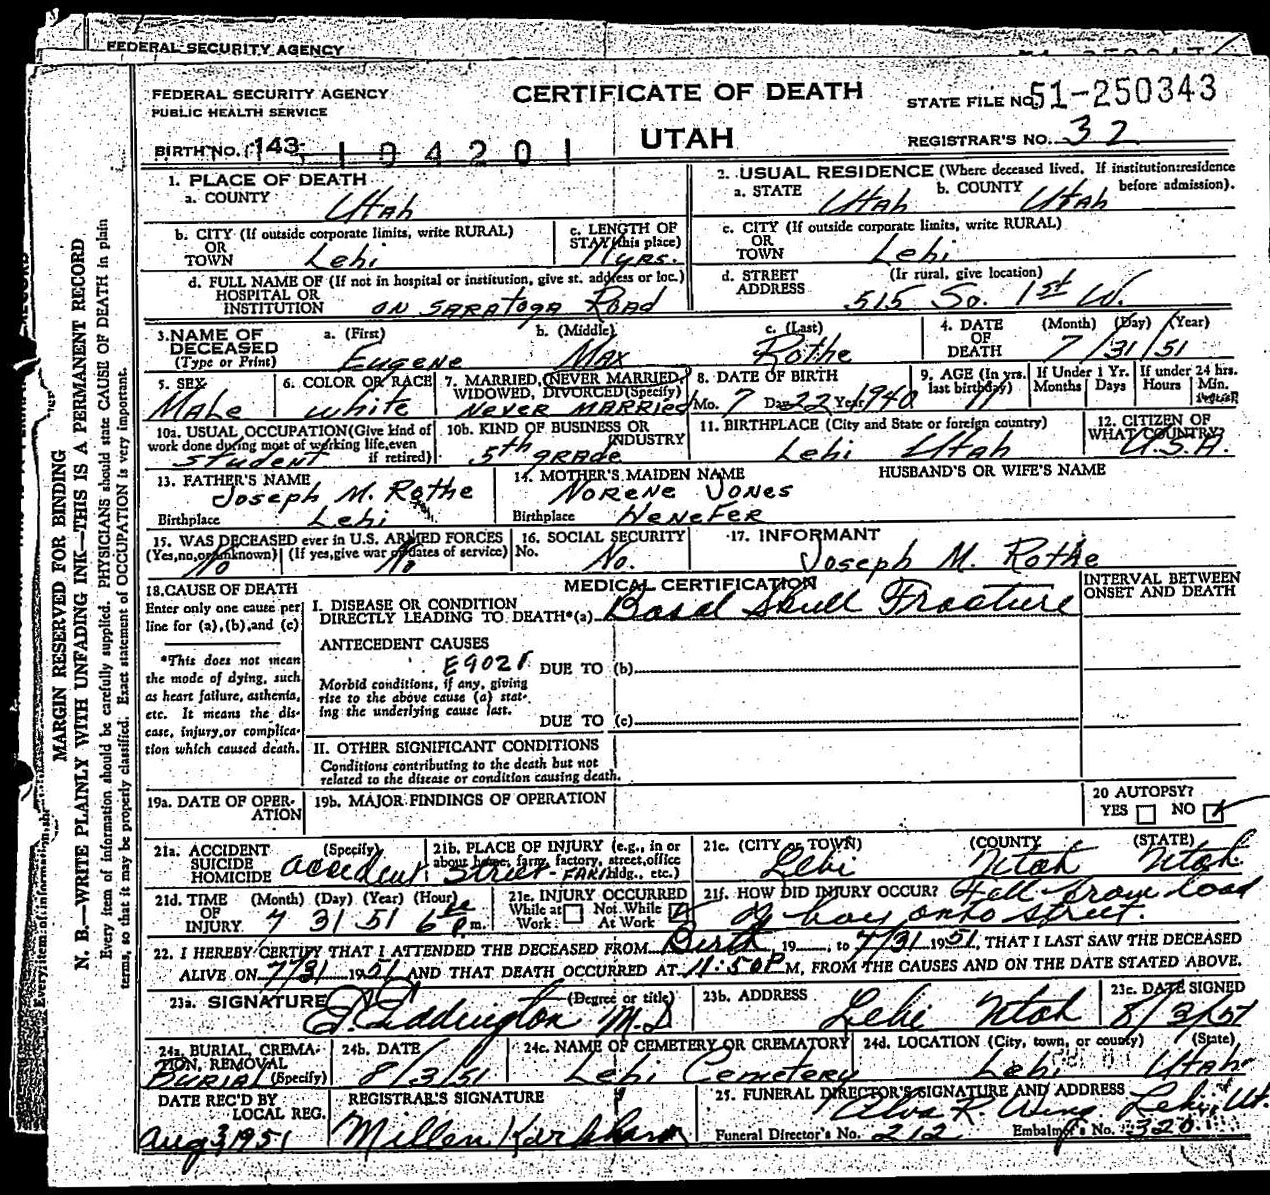 FEDERAL SECURITY AGENCY
FEDERAL SECURITY AGENCY
PUBLIC HEALTH SERVICE
CERTIFICATE OF DEATH
STATE FILE NO. 51-250343
BIRTH NO. 143, 104201
UTAH
REGISTRAR'S NO. 32
1. PLACE OF DEATH
a. COUNTY Utah
2. USUAL RESIDENCE (Where deceased lived. If institution: residence before admission).
a. STATE Utah b. COUNTY Utah
b. CITY (If outside corporate limits, write RURAL) OR TOWN Lehi
c. LENGTH OF STAY (this place) 11 yrs.
c. CITY (If outside corporate limits, write RURAL) OR TOWN Lehi
d. FULL NAME OF (If not in hospital or institution, give st. address or loc.) HOSPITAL OR INSTITUTION on Saratoga Road
d. STREET ADDRESS (If rural, give location) 515 So. 1st W.
3. NAME OF DECEASED (Type or Print)
a. (First) Eugene b. (Middle) Max c. (Last) Rothe
4. DATE OF DEATH (Month) (Day) (Year) 7/31/51
5. SEX Male
6. COLOR OR RACE white
7. MARRIED, NEVER MARRIED, WIDOWED, DIVORCED (Specify) Never married
8. DATE OF BIRTH Mo. 7 Da. 22 Year 1940
9. AGE (In yrs. last birthday) 11
If Under 1 Yr. Months Days
If under 24 hrs. Hours Min.
10a. USUAL OCCUPATION (Give kind of work done during most of working life, even if retired) Student
10b. KIND OF BUSINESS OR INDUSTRY 5th grade
11. BIRTHPLACE (City and State or foreign country) Lehi Utah
12. CITIZEN OF WHAT COUNTRY? U.S.A.
13. FATHER'S NAME Joseph M. Rothe
Birthplace Lehi
14. MOTHER'S MAIDEN NAME Norene Jones
Birthplace Henefer
HUSBAND'S OR WIFE'S NAME
15. WAS DECEASED ever in U.S. ARMED FORCES (Yes, no, or unknown) (If yes, give war or dates of service) No No
16. SOCIAL SECURITY No. No.
17. INFORMANT Joseph M. Rothe
18. CAUSE OF DEATH
Enter only one cause per line for (a), (b), and (c)
*This does not mean the mode of dying, such as heart failure, asthenia, etc. It means the disease, injury, or complication which caused death.
MEDICAL CERTIFICATION
INTERVAL BETWEEN ONSET AND DEATH
I. DISEASE OR CONDITION DIRECTLY LEADING TO DEATH*(a) Basal Skull Fracture
ANTECEDENT CAUSES
E902
DUE TO (b)
Morbid conditions, if any, giving rise to the above cause (a) stating the underlying cause last.
DUE TO (c)
II. OTHER SIGNIFICANT CONDITIONS
Conditions contributing to the death but not related to the disease or condition causing death.
19a. DATE OF OPERATION
19b. MAJOR FINDINGS OF OPERATION
20 AUTOPSY? YES NO
21a. ACCIDENT SUICIDE HOMICIDE (Specify) accident
21b. PLACE OF INJURY (e.g., in or about home, farm, factory, street, office bldg., etc.) Street - Farm
21c. (CITY or TOWN) (COUNTY) (STATE) Lehi Utah Utah
21d. TIME OF INJURY (Month) (Day) (Year) (Hour) 7 31 51 6 p m.
21e. INJURY OCCURRED While at Work Not While At Work
21f. HOW DID INJURY OCCUR? Fell from load of hay onto street.
22. I HEREBY CERTIFY THAT I ATTENDED THE DECEASED FROM Birth, 19, to 7/31 1951, THAT I LAST SAW THE DECEASED
ALIVE ON 7/31 1951 AND THAT DEATH OCCURRED AT 11:50P M, FROM THE CAUSES AND ON THE DATE STATED ABOVE.
23a. SIGNATURE (Degree or title) Eddington M.D
23b. ADDRESS Lehi Utah
23c. DATE SIGNED 8/3/51
24a. BURIAL, CREMATION, REMOVAL (Specify) Burial
24b. DATE 8/3/51
24c. NAME OF CEMETERY OR CREMATORY Lehi Cemetery
24d. LOCATION (City, town, or county) (State) Lehi Utah
DATE REC'D BY LOCAL REG. Aug 3, 1951
REGISTRAR'S SIGNATURE
25. FUNERAL DIRECTOR'S SIGNATURE AND ADDRESS Alva R. Wing Lehi, Ut.
Funeral Director's No. 212 Embalmer's No. 320
MARGIN RESERVED FOR BINDING
N. B.—WRITE PLAINLY WITH UNFADING INK—THIS IS A PERMANENT RECORD
Every item of information should be carefully supplied. PHYSICIANS should state CAUSE OF DEATH in plain
terms, so that it may be properly classified. Exact statement of OCCUPATION is very important.